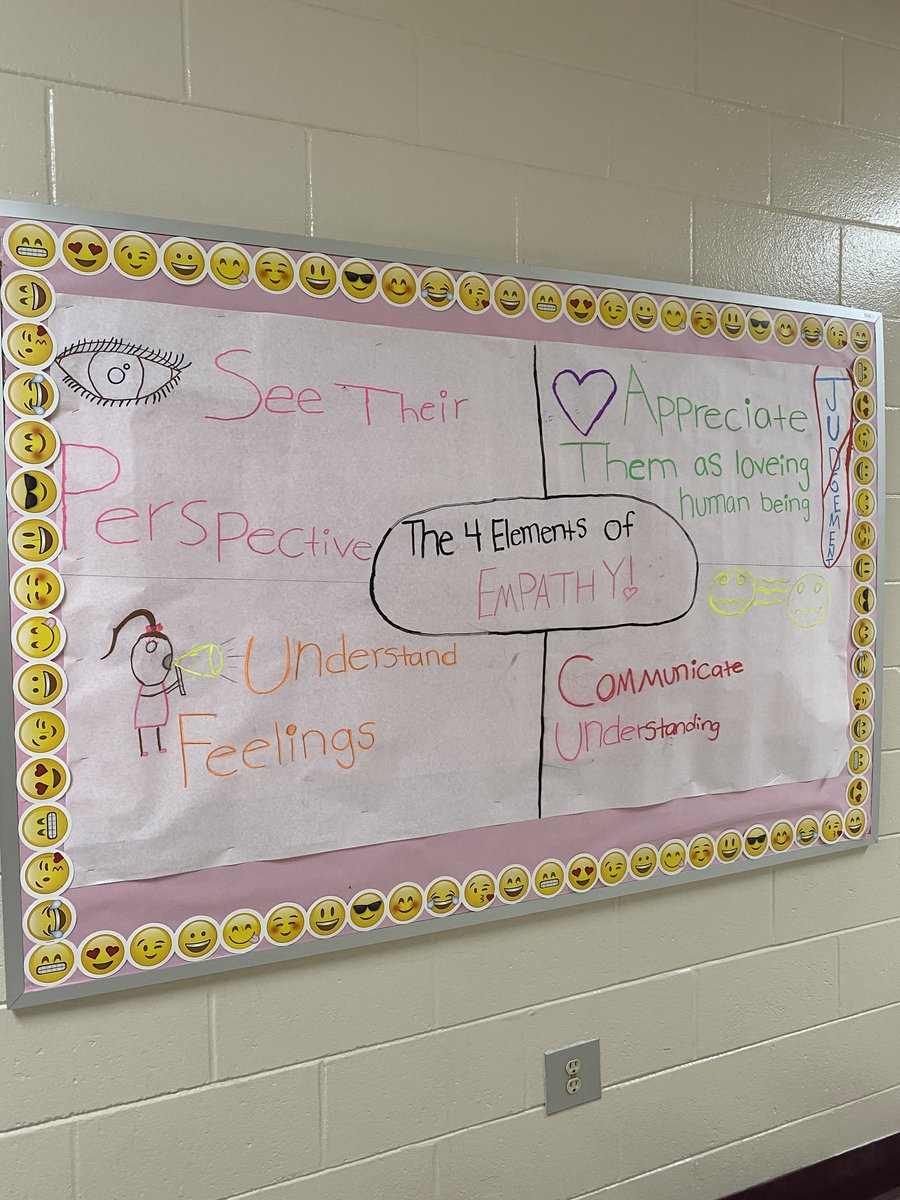 See Their
Perspective
Appreciate
Them as loveing
human being
JUDGEMENT
The 4 Elements of
EMPATHY!
Understand
Feelings
Communicate
Understanding